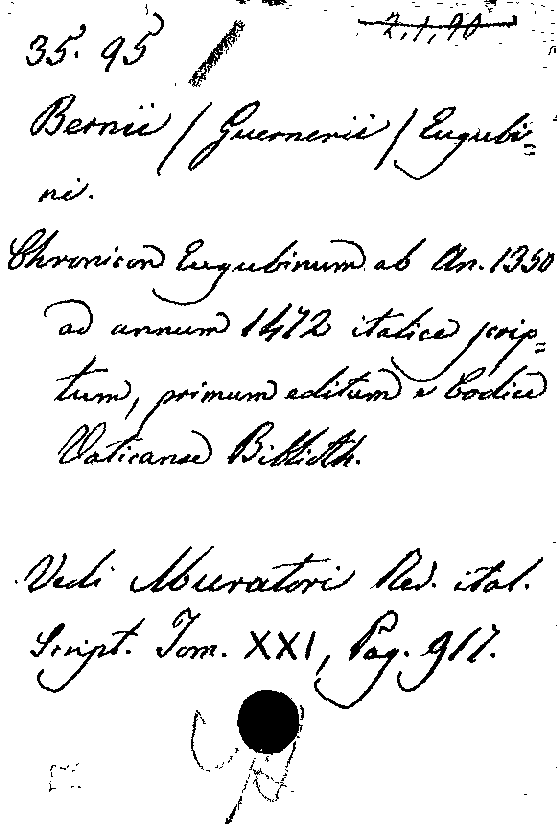 2.1.90
35. 95 /
Bernii / Guernerii / Eugubi=
ni.
Chronicon Eugubinum ab An. 1350
ad annum 1472 italice scrip=
tum, primum editum e Codice
Vaticanae Biblioth.
Vedi Muratori Rer. ital.
Script. Tom. XXI, Pag. 917.